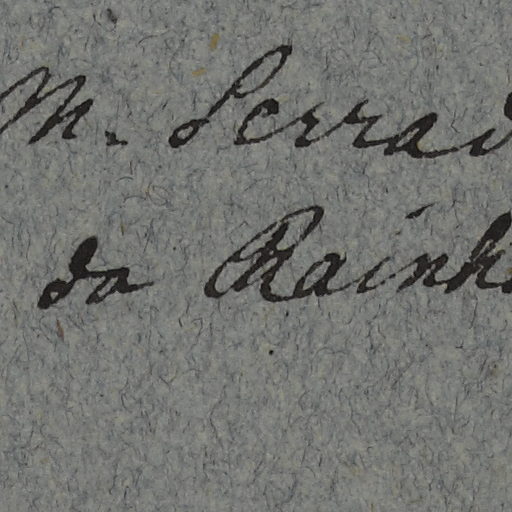 M. Serrad
da Rainh